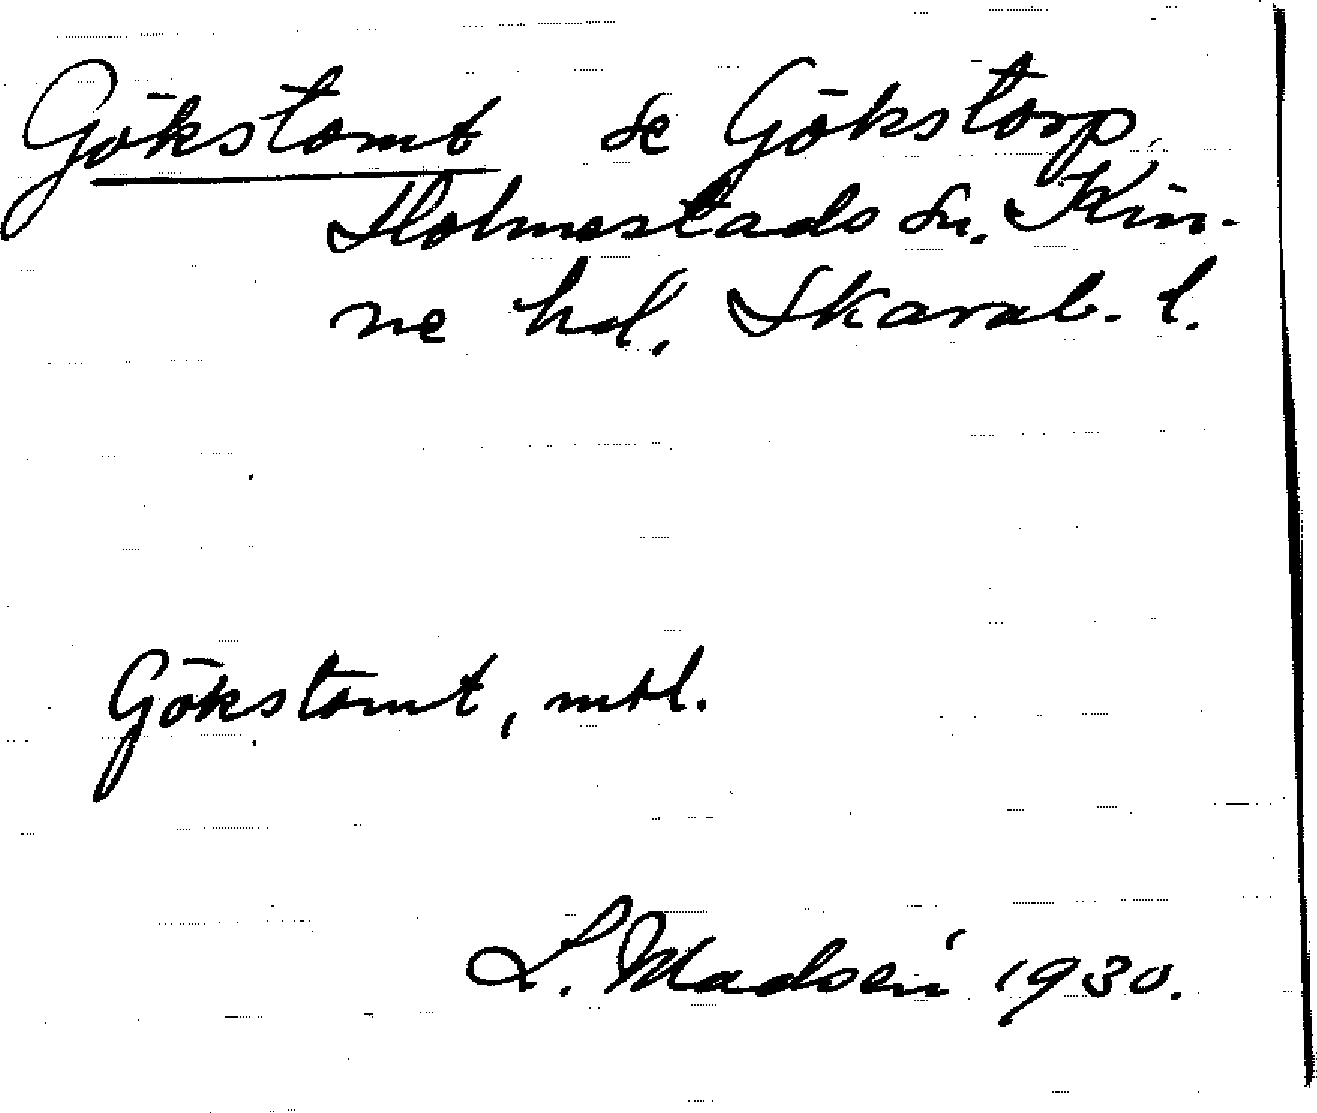 Gökstomt se Gökstorp
Holmestads sn. Kin-
ne hd. Skarab. l.
Gökstomt, mtl.
L. Madsén 1930.